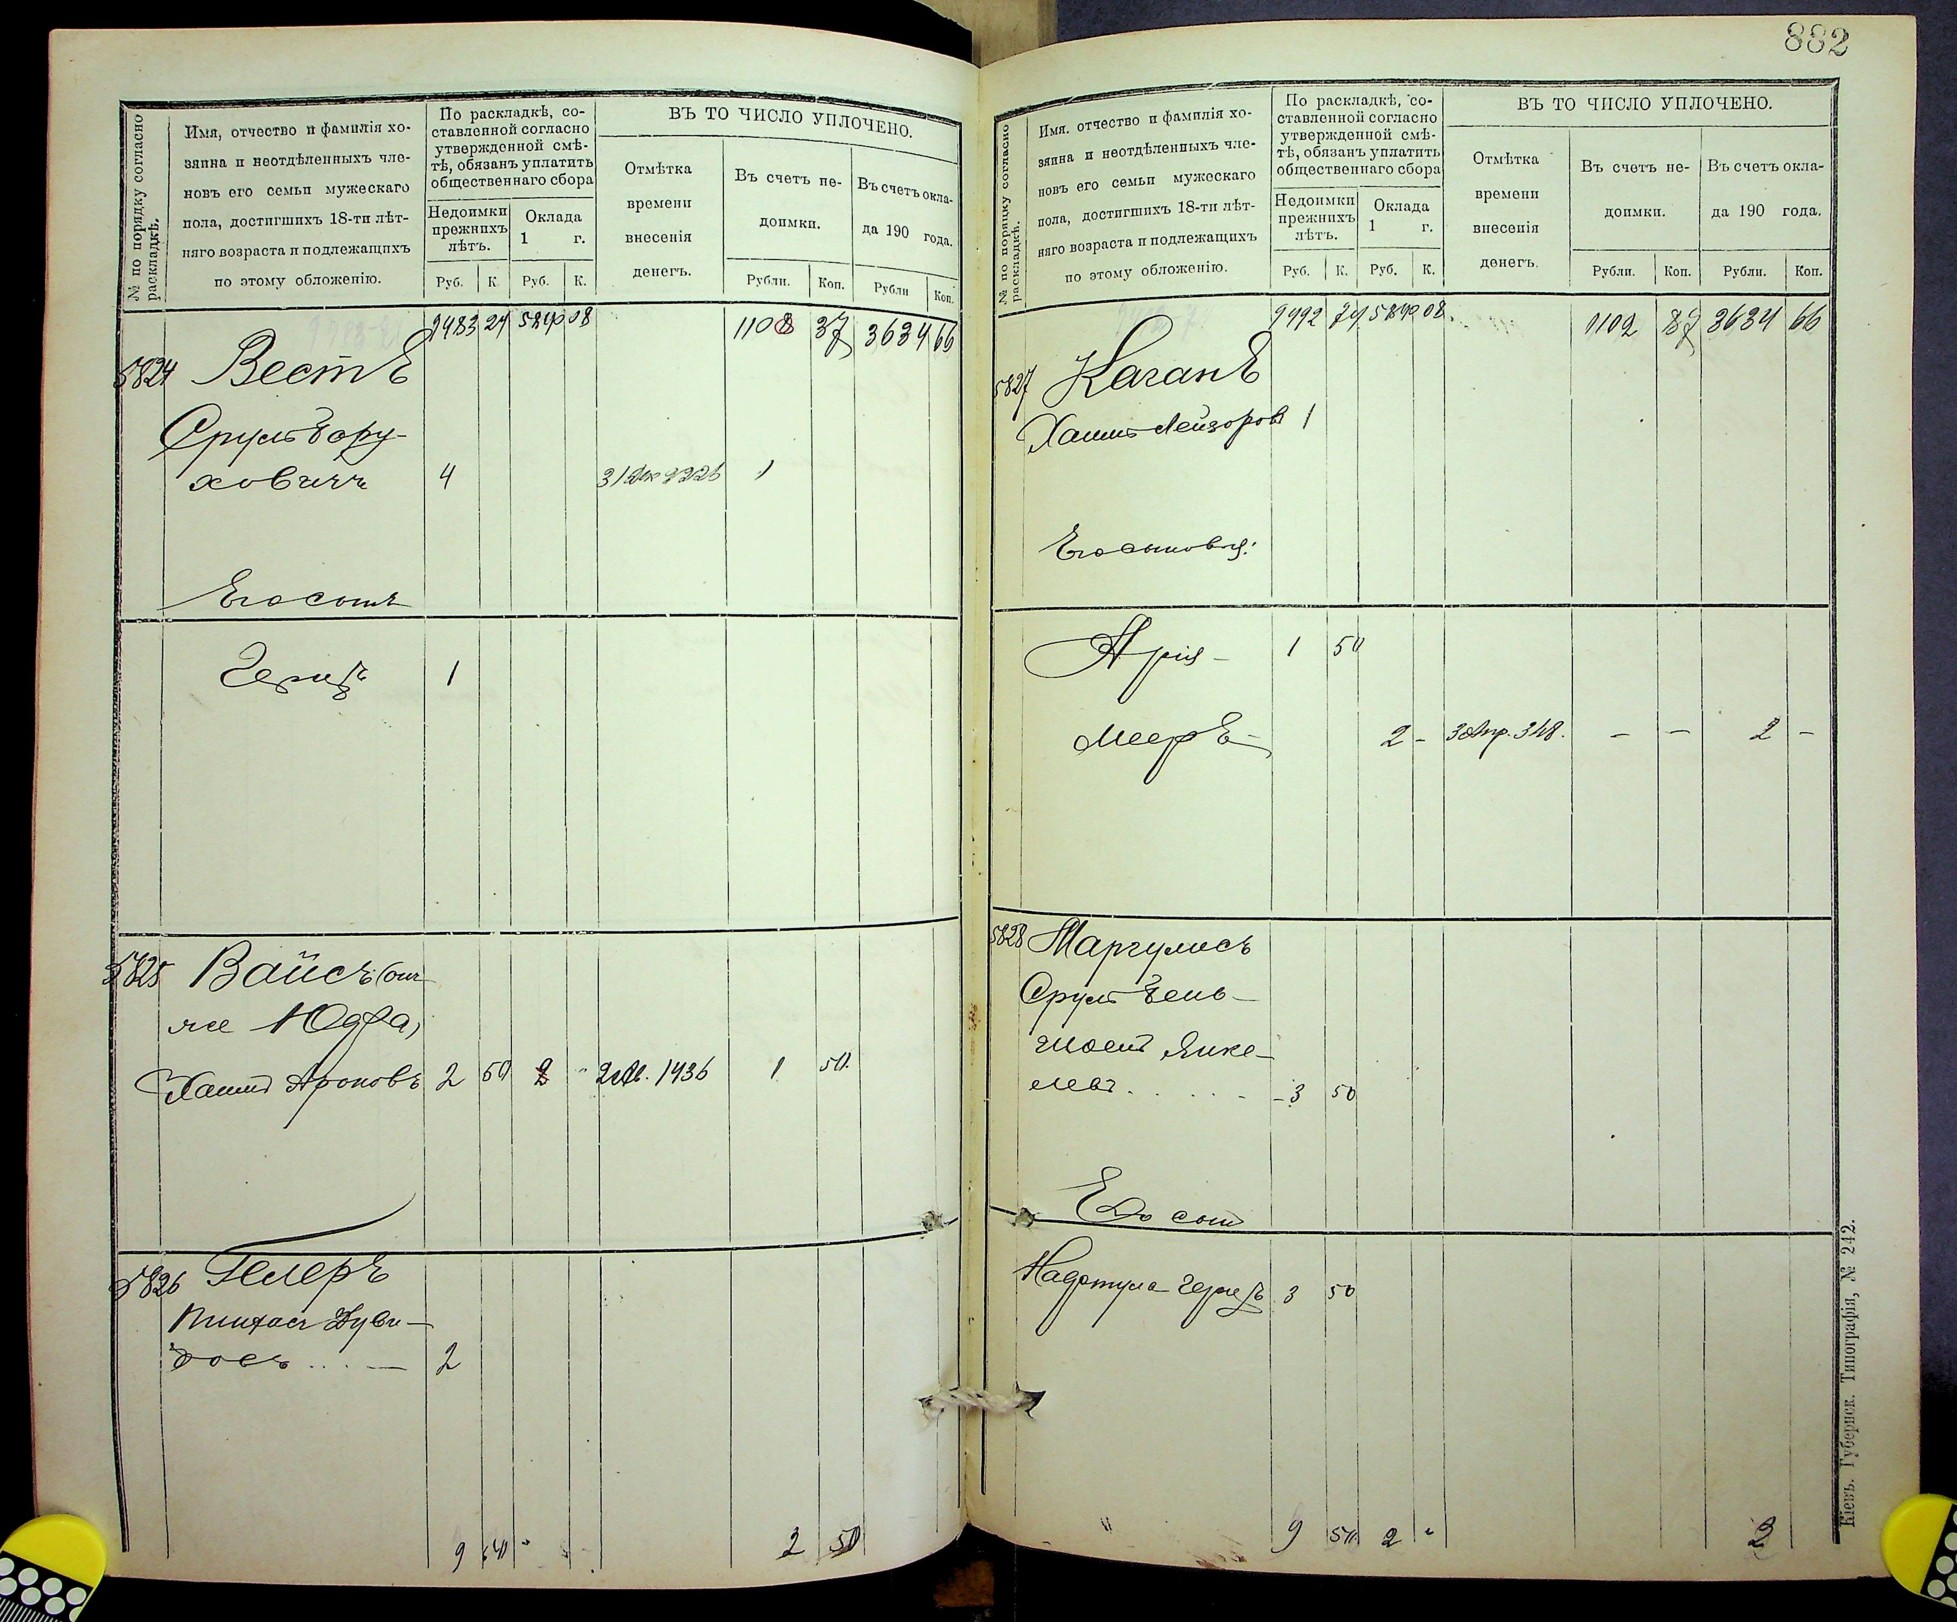 882
№ по порядку согласно раскладкѣ.
Имя, отчество и фамилія хо-
зяина и неотдѣленныхъ чле-
новъ его семьи мужескаго
пола, достигшихъ 18-ти лѣт-
няго возраста и подлежащихъ
по этому обложенію.
По раскладкѣ, со-
ставленной согласно
утвержденной смѣ-
тѣ, обязанъ уплатить
общественнаго сбора
Недоимки
прежнихъ
лѣтъ.
Оклада
1 г.
Руб. К. Руб. К.
ВЪ ТО ЧИСЛО УПЛОЧЕНО.
Отмѣтка
времени
внесенія
денегъ.
Въ счетъ не-
доимки.
Рубли. Коп.
Въ счетъ окла-
да 190 года.
Рубли Коп.
9483 24 5840 08 1108 37 3634 66
5824 Вестъ
Сруль Бору-
ховичъ 4 1
Его сынъ
Герцъ 1
5825 Вайсъ (онъ
же Юдфа)
Хаимъ Ароновъ 2 50 2 1436 1 50
5826 Гелеръ
Пинхасъ Дуви-
довъ 2
9 50 2 50
№ по порядку согласно раскладкѣ.
Имя. отчество и фамилія хо-
зяина и неотдѣленныхъ чле-
новъ его семьи мужескаго
пола, достигшихъ 18-ти лѣт-
няго возраста и подлежащихъ
по этому обложенію.
По раскладкѣ, со-
ставленной согласно
утвержденной смѣ-
тѣ, обязанъ уплатить
общественнаго сбора
Недоимки
прежнихъ
лѣтъ.
Оклада
1 г.
Руб. К. Руб. К.
ВЪ ТО ЧИСЛО УПЛОЧЕНО.
Отмѣтка
времени
внесенія
денегъ.
Въ счетъ не-
доимки.
Рубли. Коп.
Въ счетъ окла-
да 190 года.
Рубли. Коп.
9492 74 5840 08 1102 87 3634 66
5827 Каганъ
Хаимъ Лейзоровъ 1
Его сыновья:
Арія - 1 50
Мееръ - 2 - 3 Апр. 348. - - 2 -
5828 Маргулисъ
Сруль Бень-
ціонъ Янке-
левъ - 3 50
Его сынъ
Надтула Герцъ 3 50
9 50 2 " 2
Кіевъ. Губернск. Типографія, № 242.